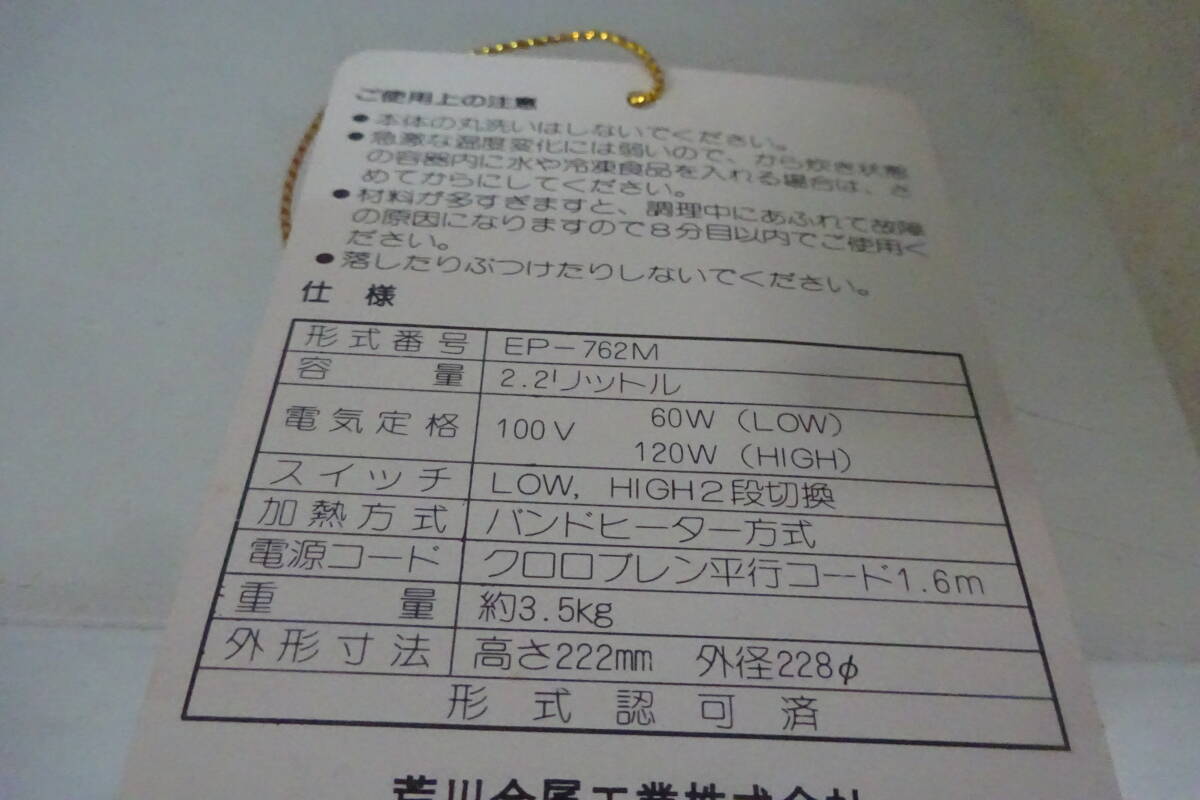 ご使用上の注意
●本体の丸洗いはしないでください。
●急激な温度変化には弱いので、から炊き状態
の容器内に水や冷凍食品を入れる場合は、さ
めてからにしてください。
●材料が多すぎますと、調理中にあふれて故障
の原因になりますので8分目以内でご使用く
ださい。
●落したりぶつけたりしないでください。
仕様
形式番号 EP-762M
容量 2.2リットル
電気定格 100V 60W (LOW)
120W (HIGH)
スイッチ LOW, HIGH2段切換
加熱方式 バンドヒーター方式
電源コード クロロプレン平行コード1.6m
重量 約3.5kg
外形寸法 高さ222mm 外径228φ
形式認可済
荒川金属工業株式会社